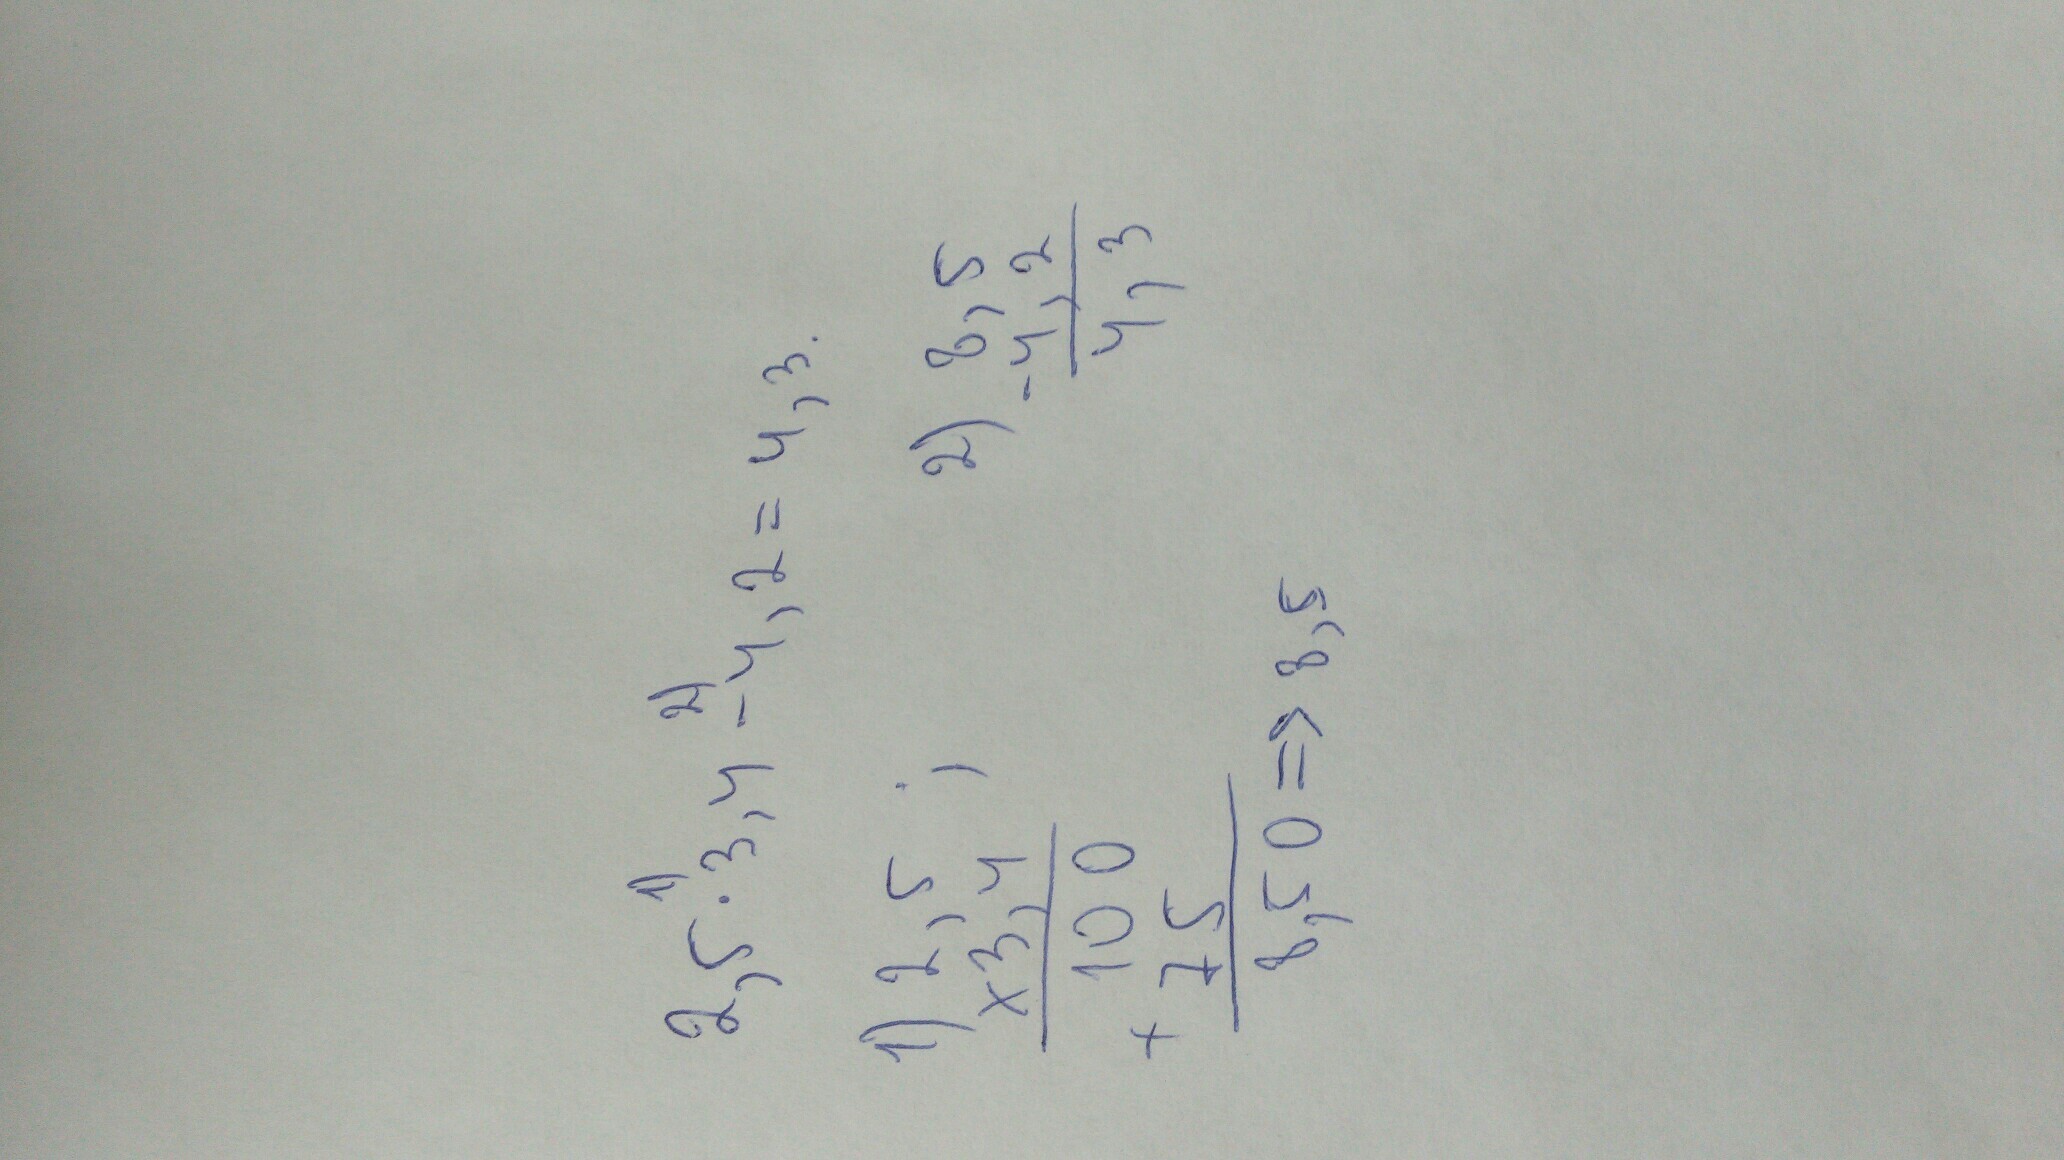 2,5 · 3,4 - 4,2 = 4,3.
1) 2)
1) 2,5 ;
×3,4
100
+ 75
8,50 => 8,5
2) 8,5
-4,2
4,3